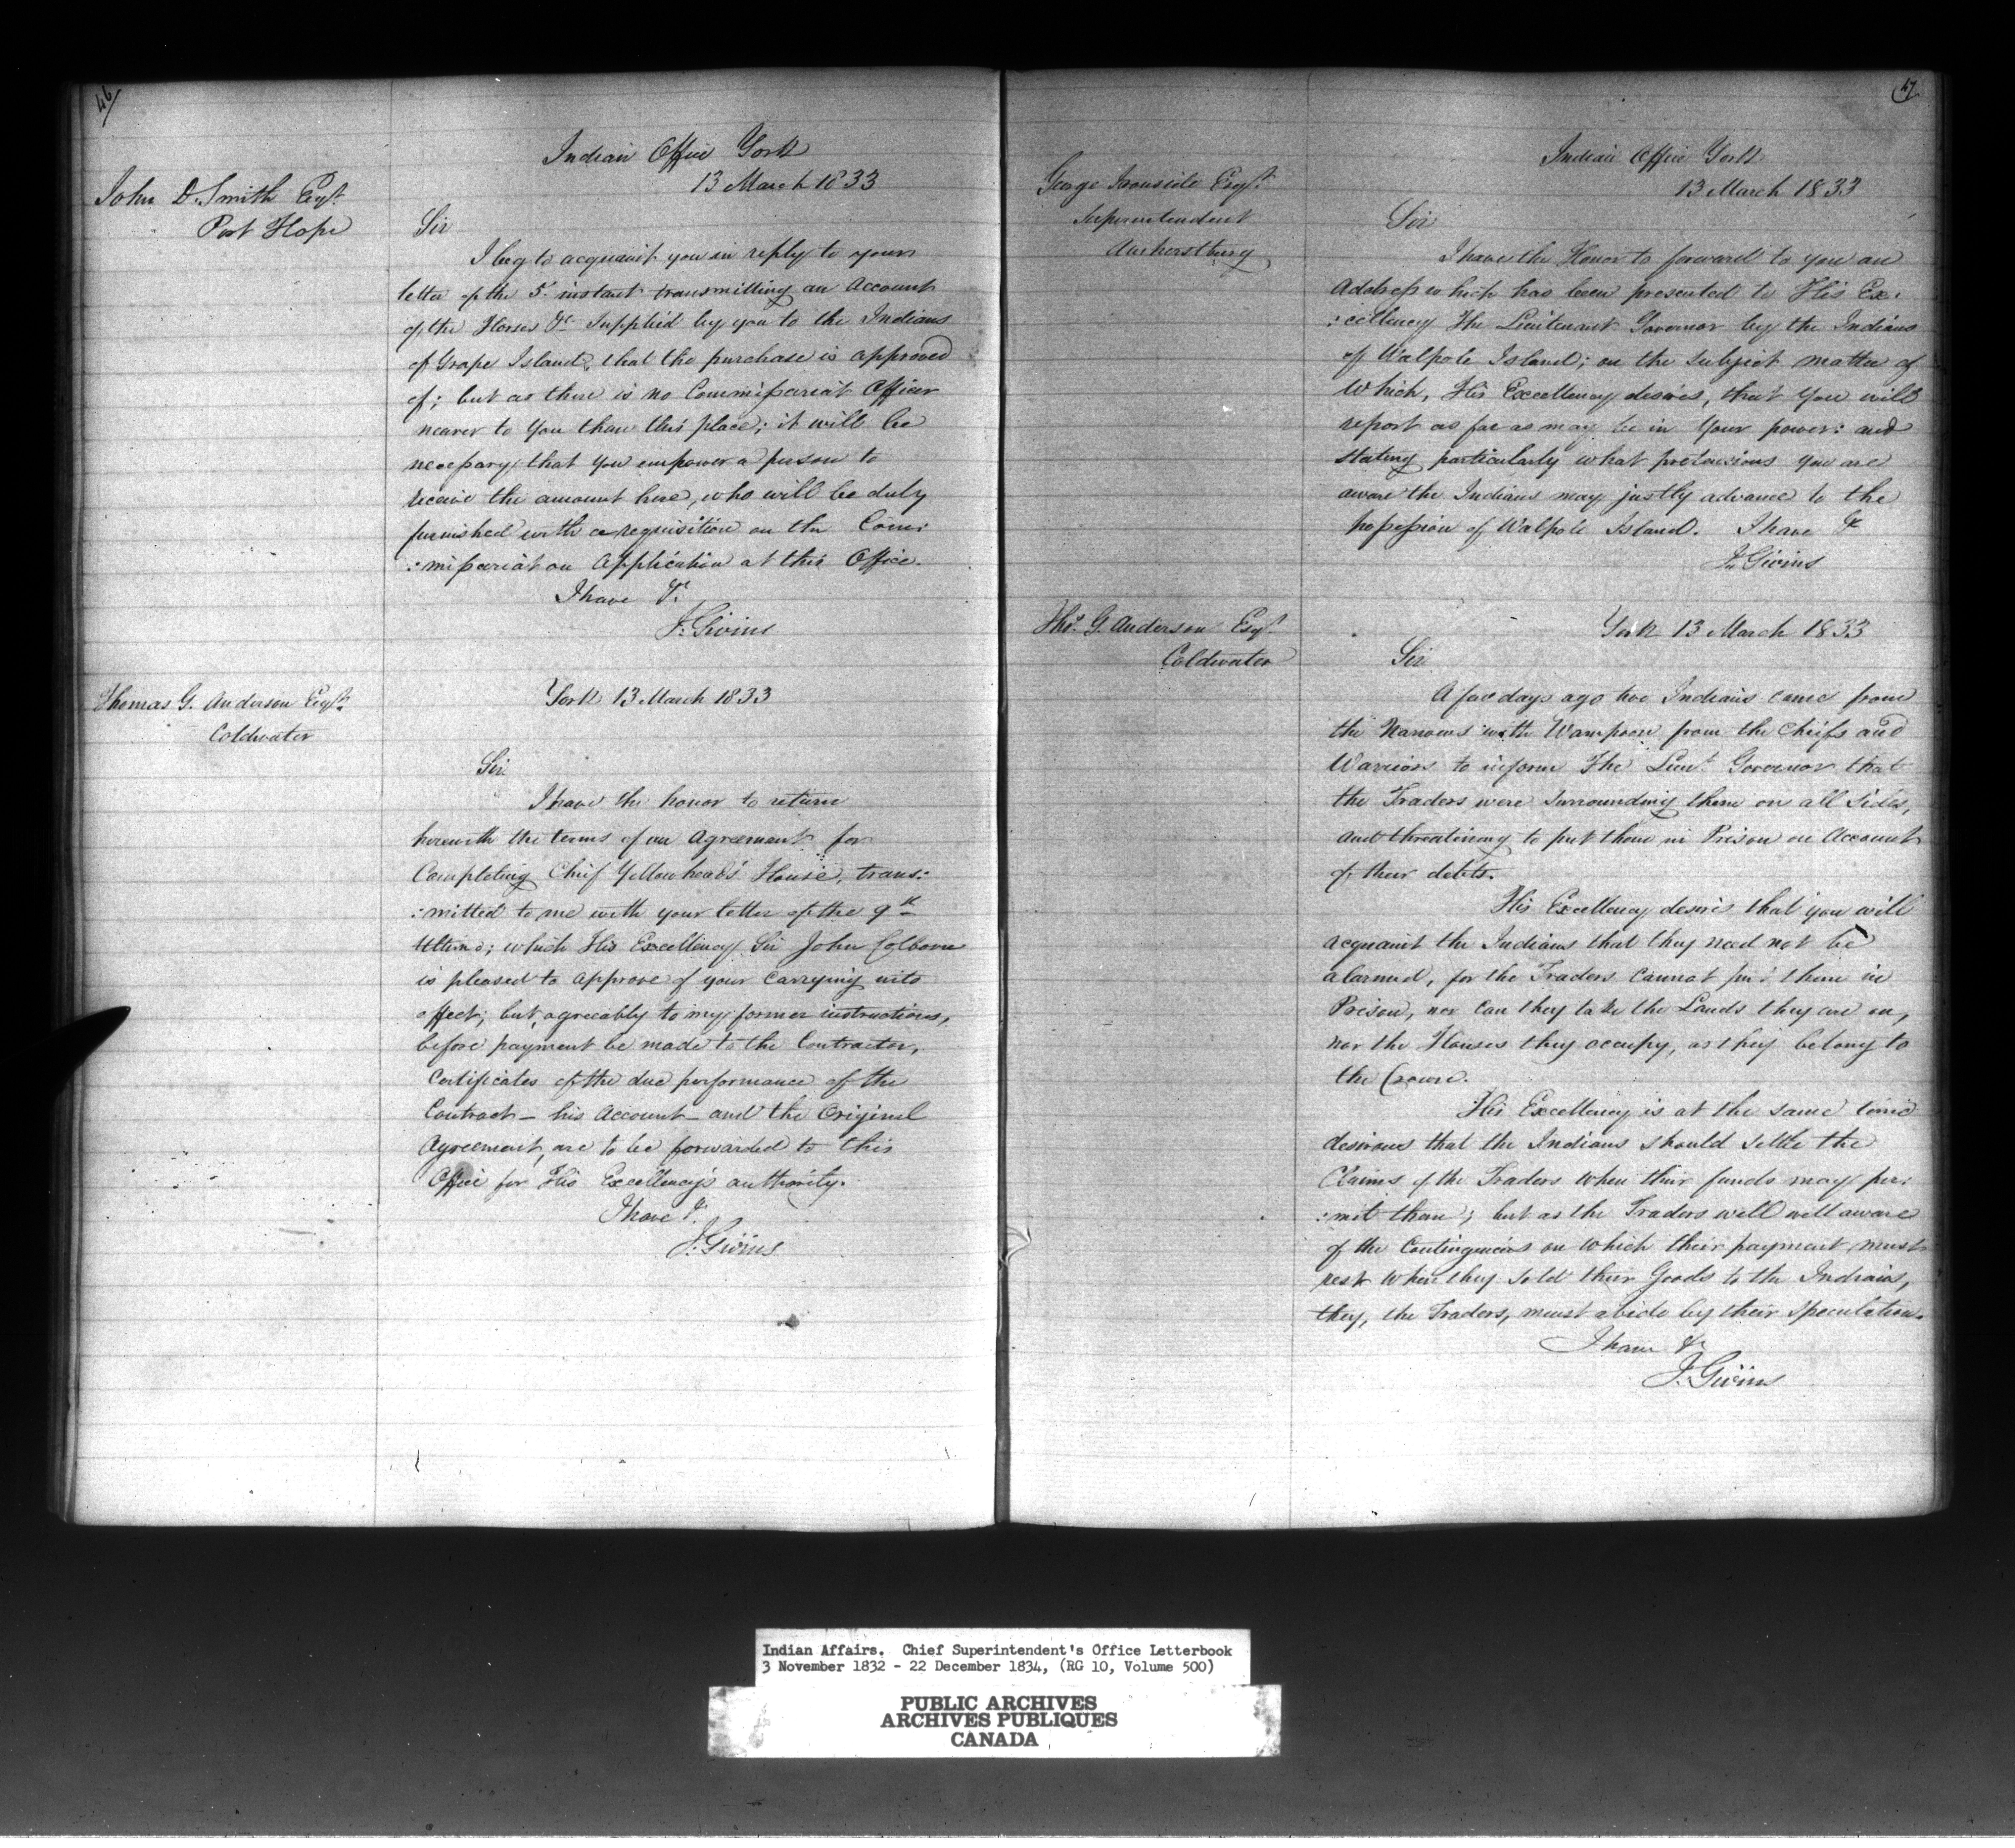 46
John D. Smith Esqr.
Port Hope
Indian Office York
13 March 1833
Sir
I beg to acquaint you in reply to your
letter of the 5th instant transmitting an Account
of the Horses &c Supplied by you to the Indians
of Grape Island, that the purchase is approved
of; but as there is no Commissariat Officer
nearer to You than this place; it will be
necessary that you empower a person to
receive the amount here, who will be duly
furnished with a requisition on the Com:
:missariat on Application at this Office.
I have &c.
J. Givins
Thomas G. Anderson Esqr.
Coldwater
York 13 March 1833
Sir
I have the honor to return
herewith the terms of an Agreement for
Completing Chief Yellowhead's House, trans:
:mitted to me with your letter of the 9th
Ultimo; which His Excellency Sir John Colborne
is pleased to approve of your Carrying into
effect; but, agreeably to my former instructions,
before payment be made to the Contractor,
Certificates of the due performance of the
Contract - his Account - and the Original
Agreement, are to be forwarded to this
Office for His Excellency's authority.
I have &c.
J. Givins
47
George Ironside Esqr.
Superintendent
Amherstburg
Indian Office York
13 March 1833
Sir
I have the Honor to forward to you an
Address which has been presented to His Ex:
:cellency The Lieutenant Governor by the Indians
of Walpole Island; on the Subject matter of
Which, His Excellency desires, that You will
report as far as may be in Your power: and
stating particularly what pretensions you are
aware the Indians may justly advance to the
possession of Walpole Island. I have &c
J. Givins
Thos. G. Anderson Esqr.
Coldwater
York 13 March 1833
Sir
A few days ago two Indians came from
the Narrows with Wampoon from the Chiefs and
Warriors to inform The Lieut. Governor that
the Traders were Surrounding them on all Sides,
and threatining to put them in Prison on Account
of their debts.
His Excellency desires that you will
acquaint the Indians that they need not be
alarmed, for the Traders Cannot put them in
Prison, nor Can they take the Lands they are on,
nor the Houses they occupy, as they belong to
the Crown.
His Excellency is at the same time
desirous that the Indians should settle the
Claims of the Traders when their funds may per:
:mit them; but as the Traders well well aware
of the Contingencies on which their payment must
rest when they sold their Goods to the Indians,
they, the Traders, must abide by their speculation.
I have &c
J. Givins
Indian Affairs. Chief Superintendent's Office Letterbook
3 November 1832 - 22 December 1834, (RG 10, Volume 500)
PUBLIC ARCHIVES
ARCHIVES PUBLIQUES
CANADA